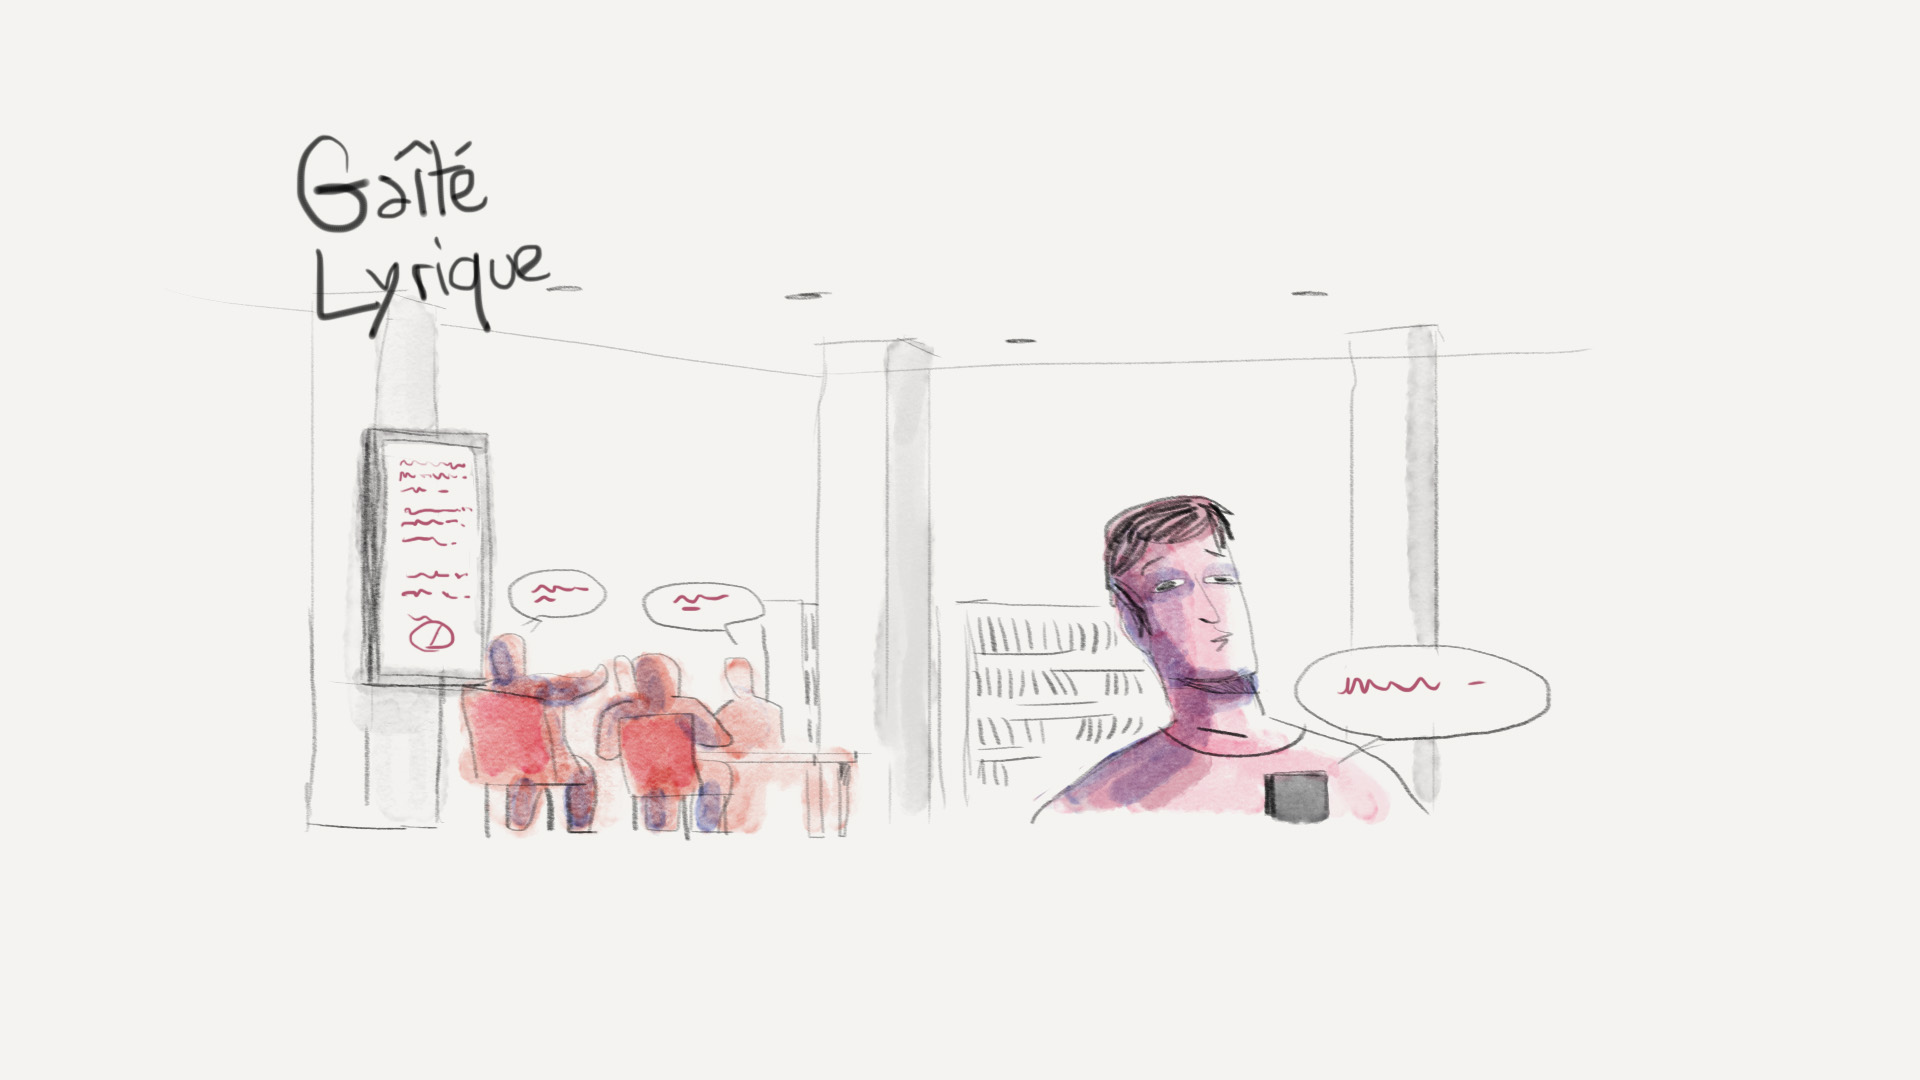 Gaîté
Lyrique